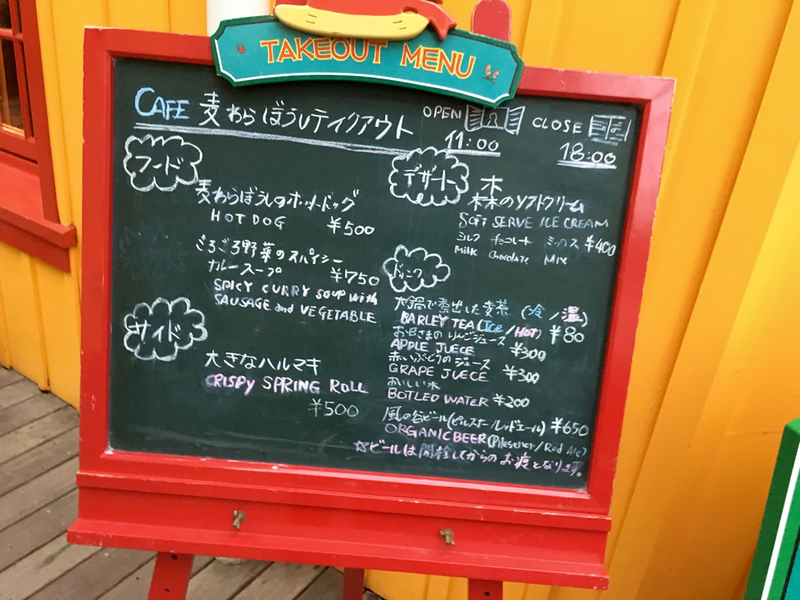 TAKEOUT MENU
CAFE 麦わらぼうしテイクアウト
OPEN
11:00
CLOSE
18:00
フード
麦わらぼうしのホットドッグ
HOT DOG ¥500
ごろごろ野菜のスパイシー
カレースープ ¥750
SPICY CURRY SOUP with
SAUSAGE and VEGETABLE
サイド
大きなハルマキ
CRISPY SPRING ROLL
¥500
デザート
森のソフトクリーム
SOFT SERVE ICE CREAM
ミルク チョコレート ミックス ¥400
Milk Chocolate MIX
ドリンク
大鍋で煮出した麦茶 (冷/温)
BARLEY TEA (ICE/HOT) ¥80
お日さまのりんごジュース
APPLE JUECE ¥300
赤いぶどうのジュース
GRAPE JUECE ¥300
おいしい水
BOTLED WATER ¥200
風の谷ビール(ピルスナー/レッドエール) ¥650
ORGANIC BEER (Pilesener/Red Ale)
☆ビールは開栓してからのお渡しとなります。